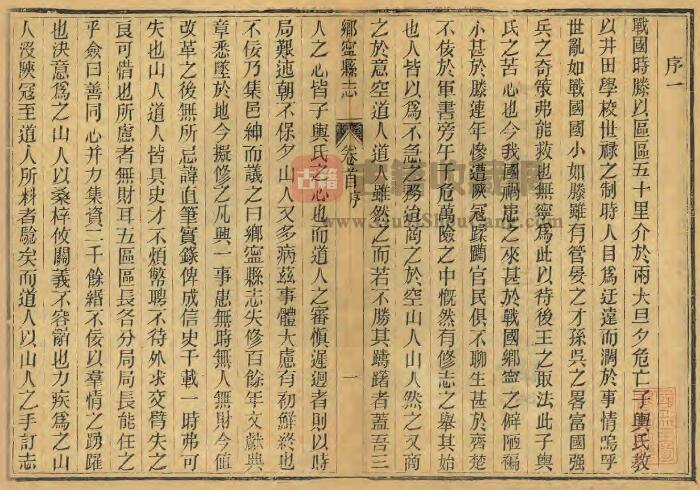 序一
戰國時滕以區區五十里介於兩大旦夕危亡子輿氏教
以井田學校世祿之制時人目爲迂遠而濶於事情嗚乎
世亂如戰國國小如滕雖有管晏之才孫吳之畧富國强
兵之奇策弗能救也無寧爲此以待後王之取法此子輿
氏之苦心也今我國禍患之來甚於戰國鄉寧之僻陋褊
小甚於滕連年慘遭陝寇蹂躪官民俱不聊生甚於齊楚
不佞於軍書旁午千危萬險之中慨然有修志之舉其始
也人皆以爲不急之務迨商之於空山人山人然之又商
之於意空道人道人雖然之而若不勝其躊躇者蓋吾三
鄉寧縣志 卷首序 一
人之心皆子輿氏之心也而道人之審愼遲迴者則以時
局艱迍朝不保夕山人又多病茲事體大慮有初鮮終也
不佞乃集邑紳而議之曰鄉寧縣志失修百餘年文獻典
章悉墜於地今擬修之凡興一事患無時無人無財今値
改革之後無所忌諱直筆實錄俾成信史千載一時弗可
失也山人道人皆具史才不煩幣聘不待外求交臂失之
良可惜也所慮者無財耳五區區長各分局局長能任之
乎僉曰善同心幷力集資二千餘緡不佞以羣情之踴躍
也決意爲之山人以桑梓攸關義不容辭也力疾爲之山
人沒陝寇至道人所料者驗矣而道人以山人之手訂志
古籍